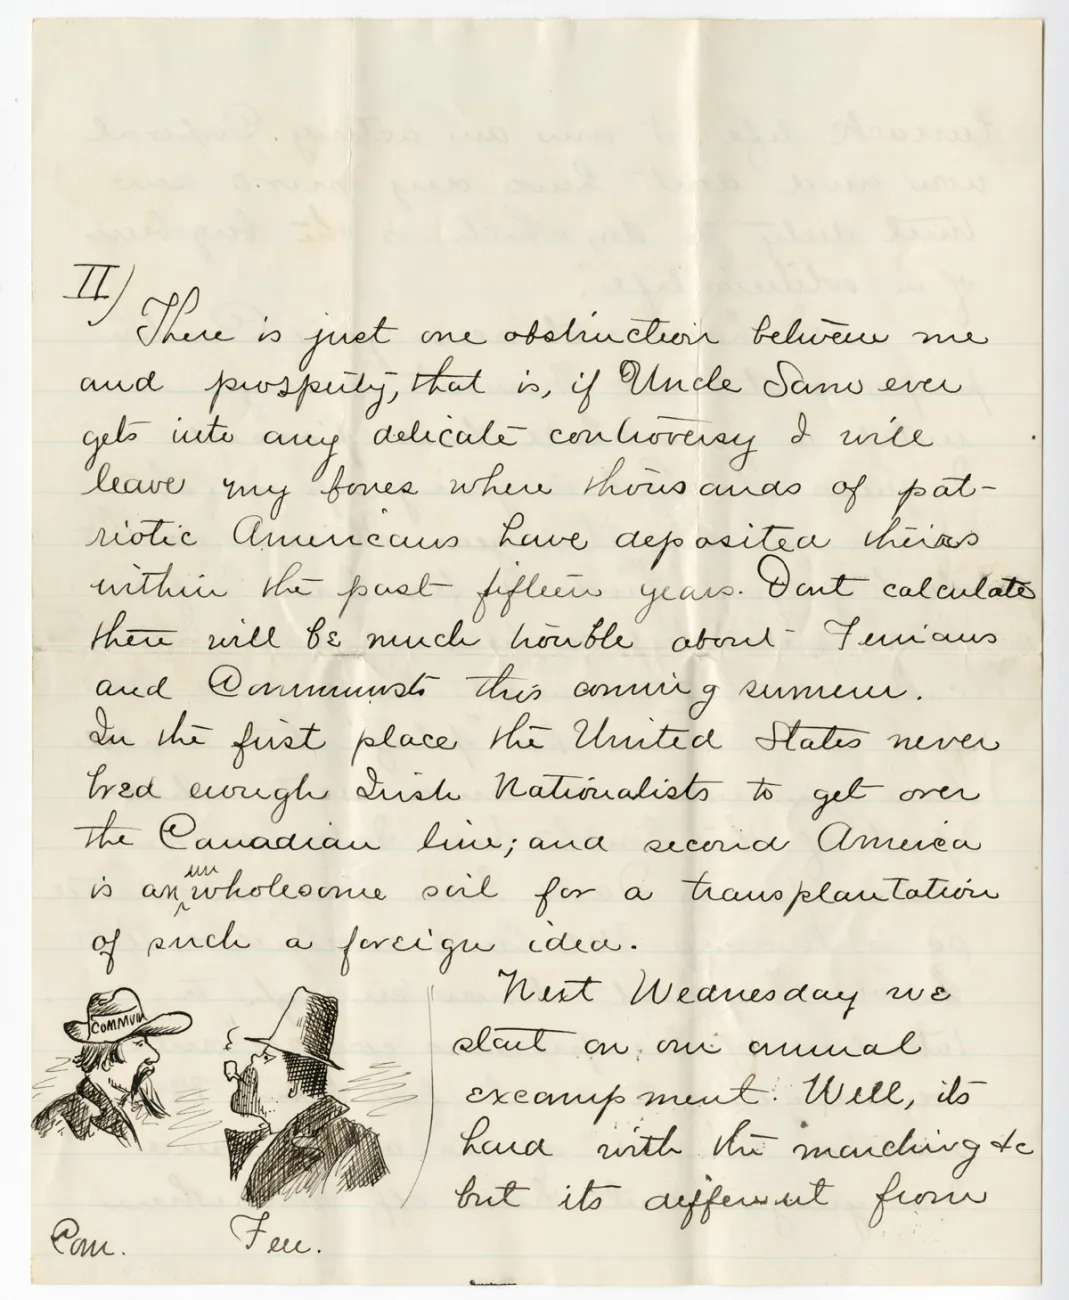 II)
There is just one obstruction between me
and prosperity, that is, if Uncle Sam ever
gets into any delicate controversy I will
leave my bones where thousands of pat-
riotic Americans have deposited theirs
within the past fifteen years. Dont calculate
there will be much trouble about Fenians
and Communists this coming summer.
In the first place the United States never
bred enough Irish Nationalists to get over
the Canadian line; and second America
un
is an wholesome soil for a transplantation
of such a foreign idea.
Next Wednesday we
start on our annual
excampment. Well, its
hard with the marching &c
but its different from
COMMUN
Com. Fen.